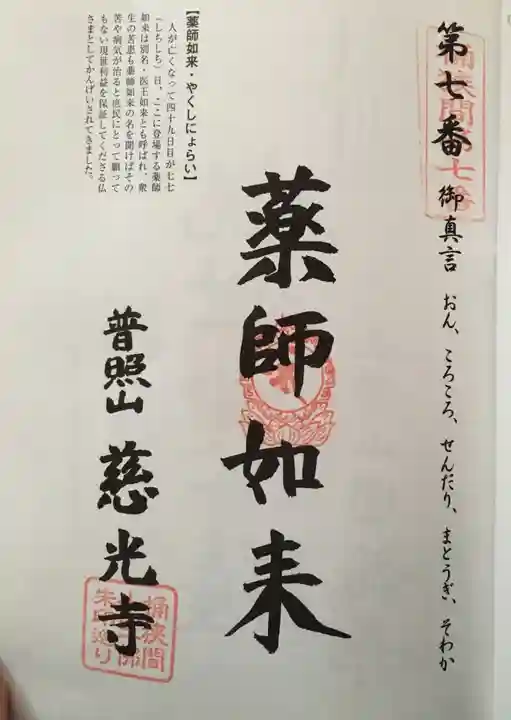 第七番 御真言 おん、ころころ、せんだり、まとうぎ、そわか
薬師如来
普照山 慈光寺
桶狭間
朱印巡り
【薬師如来・やくしにょらい】
人が亡くなって四十九日目が七七
（しちしち）日。ここに登場する薬師
如来は別名・医王如来とも呼ばれ、衆
生の苦患も薬師如来の名を聞けばその
苦や病気が治ると庶民にとって願って
もない現世利益を保証してくださる仏
さまとしてかんげいされてきました。